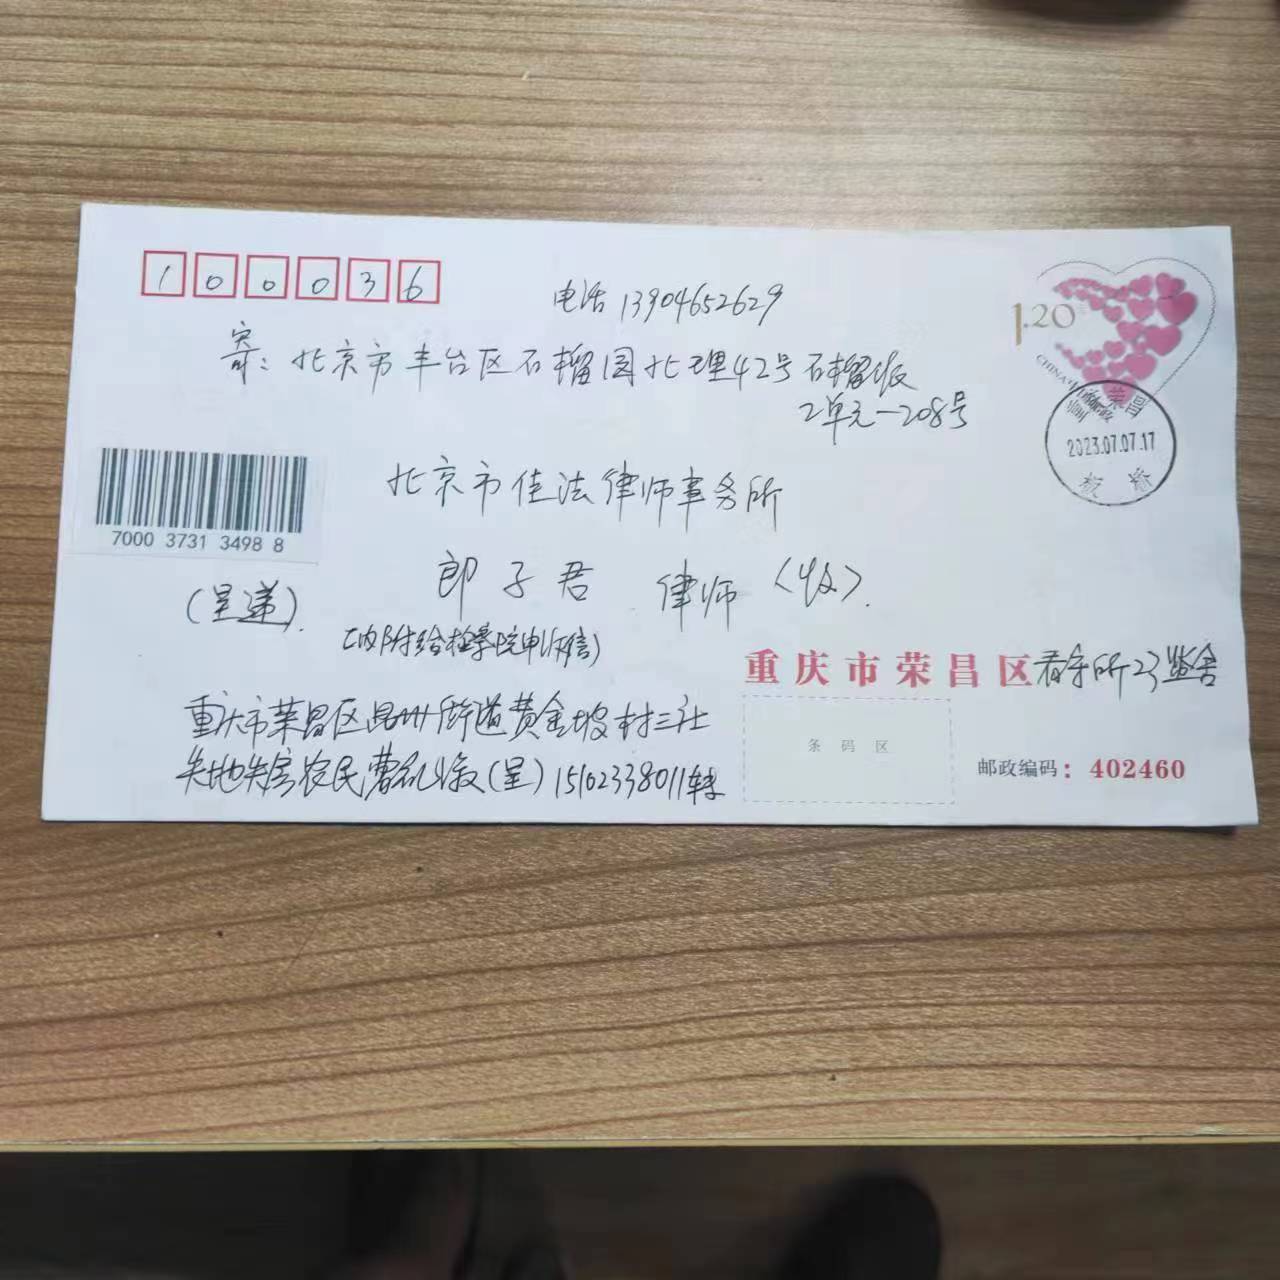 100036
电话 13904652629
1.20
CHINA
寄：北京市丰台区石榴园北里42号石榴
2单元一208号
2023.07.07.17
荣昌
北京市佳法律师事务所
7000 3731 3498 8
郎子君 律师〈收〉.
(呈递).
(内附给检察院申诉信)
重庆市荣昌区看守所23监舍
重庆市荣昌区昌州街道黄金坡村三社
失地失房农民曹(呈)15102338011转
条码区
邮政编码：402460